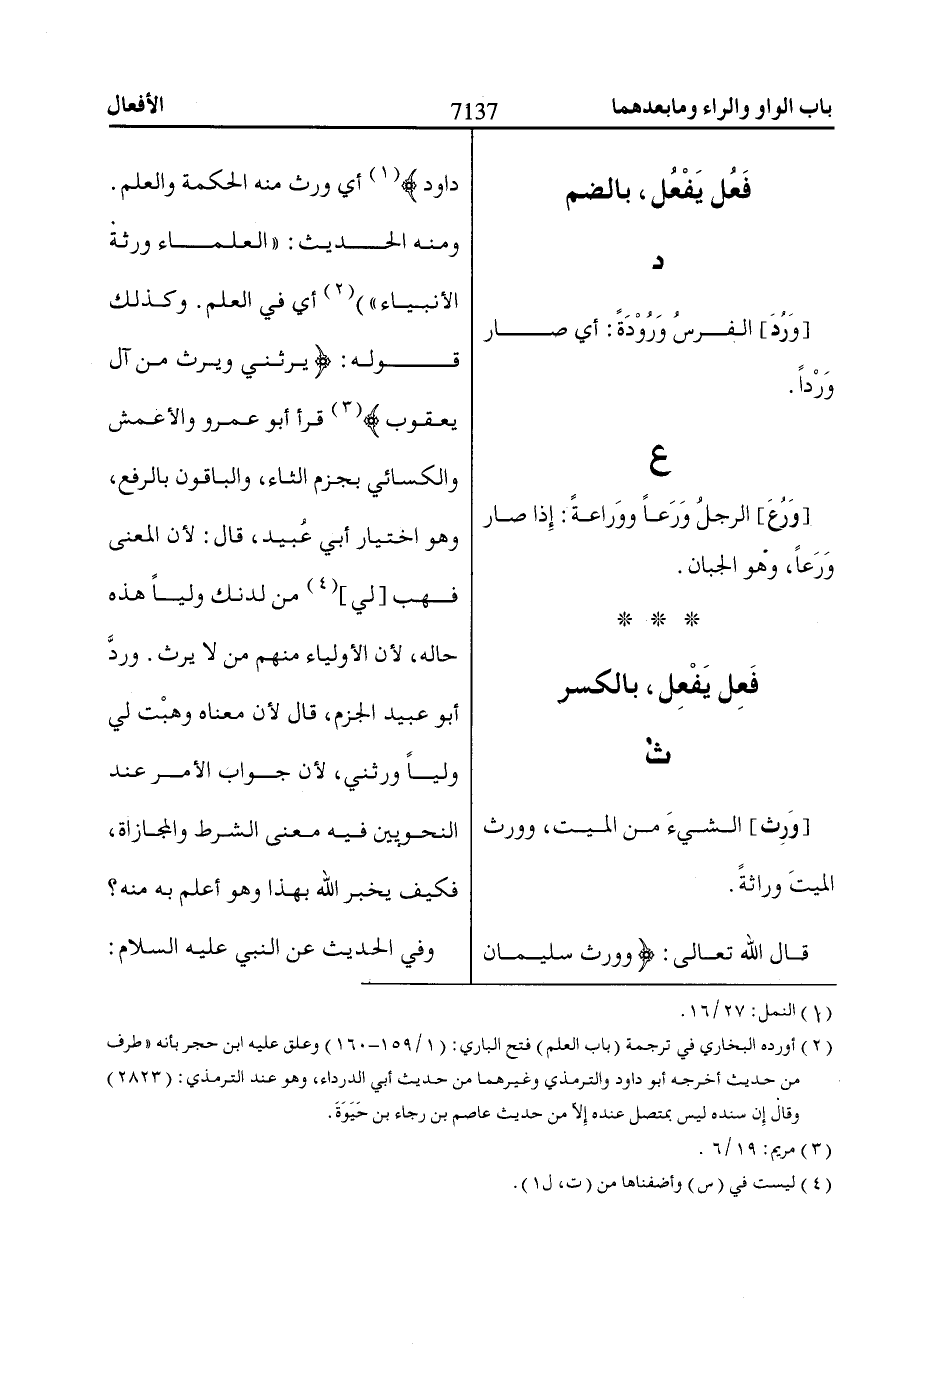 باب الواو والراء ومابعدهما
7137
الأفعال
فَعُل يَفْعُل، بالضم
د
[وَرُدَ] الفرسُ وَرُوْدَةً: أي صار
وَرْداً.
ع
[وَرُعَ] الرجلُ وَرَعاً ووَراعةً: إذا صار
وَرَعاً، وهو الجبان.
* * *
فَعِل يَفْعِل، بالكسر
ث
[وَرِث] الشيءَ من الميت، وورث
الميتَ وراثةً.
قال الله تعالى: ﴿وورث سليمان
داود﴾(١) أي ورث منه الحكمة والعلم.
ومنه الحديث: «العلماء ورثة
الأنبياء»)(٢) أي في العلم. وكذلك
قوله: ﴿يرثني ويرث من آل
يعقوب﴾(٣) قرأ أبو عمرو والأعمش
والكسائي بجزم الثاء، والباقون بالرفع،
وهو اختيار أبي عُبيد، قال: لأن المعنى
فهب [لي](٤) من لدنك ولياً هذه
حاله، لأن الأولياء منهم من لا يرث. وردَّ
أبو عبيد الجزم، قال لأن معناه وهبْت لي
ولياً ورثني، لأن جواب الأمر عند
النحويين فيه معنى الشرط والمجازاة،
فكيف يخبر الله بهذا وهو أعلم به منه؟
وفي الحديث عن النبي عليه السلام:
(١) النمل: ١٦/٢٧.
(٢) أورده البخاري في ترجمة (باب العلم) فتح الباري: (١/ ١٥٩-١٦٠) وعلق عليه ابن حجر بأنه «طرف
من حديث أخرجه أبو داود والترمذي وغيرهما من حديث أبي الدرداء، وهو عند الترمذي: (٢٨٢٣)
وقال إن سنده ليس بمتصل عنده إلاّ من حديث عاصم بن رجاء بن حَيَوَةَ.
(٣) مريم: ٦/١٩ .
(٤) ليست في (س) وأضفناها من (ت، ل١).